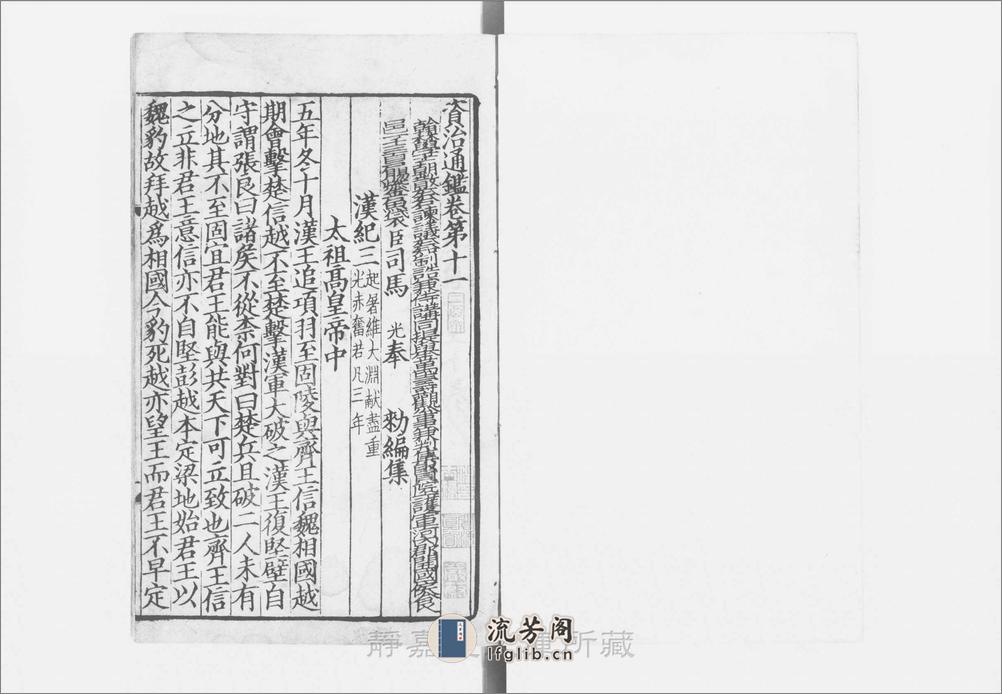 資治通鑑卷第十一
翰林學士朝散大夫右諫議大夫知制誥兼侍講同提舉萬壽觀公事兼判集賢院上護軍河內郡開國侯食
邑 臣司馬 光奉 勑編集
漢紀三 起屠維大淵獻盡重
光赤奮若凡三年
太祖高皇帝中
五年冬十月漢王追項羽至固陵與齊王信魏相國越
期會擊楚信越不至楚擊漢軍大破之漢王復堅壁自
守謂張良曰諸矦不從柰何對曰楚兵且破二人未有
分地其不至固宜君王能與共天下可立致也齊王信
之立非君王意信亦不自堅彭越本定梁地始君王以
魏豹故拜越爲相國今豹死越亦望王而君王不早定
靜嘉 所藏
流芳阁
lfglib.cn